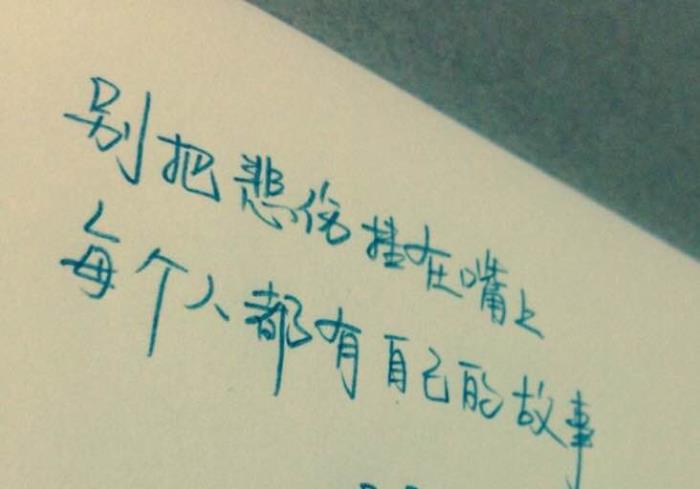 别把悲伤挂在嘴上
每个人都有自己的故事